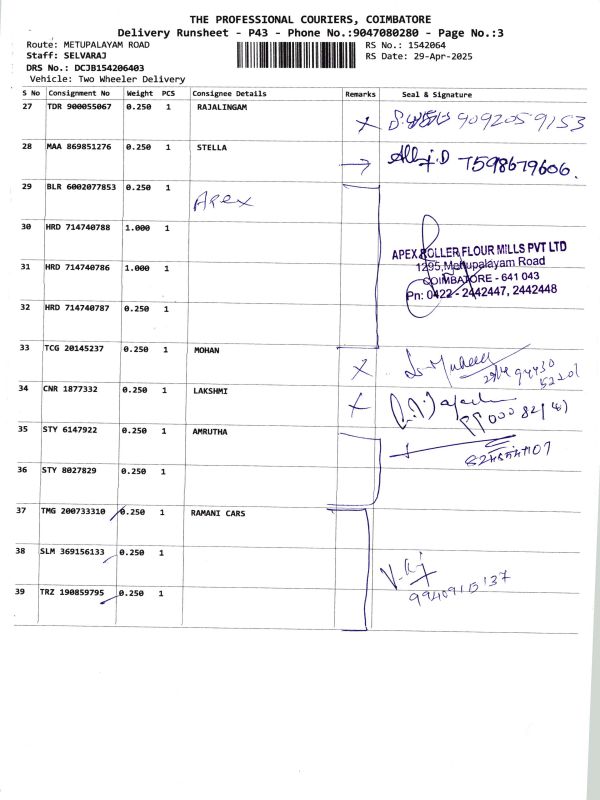 THE PROFESSIONAL COURIERS, COIMBATORE
Delivery Runsheet - P43 - Phone No.:9047080280 - Page No.:3
Route: METUPALAYAM ROAD RS No.: 1542064
Staff: SELVARAJ RS Date: 29-Apr-2025
DRS No.: DCJB154206403
Vehicle: Two Wheeler Delivery
S No Consignment No Weight PCS Consignee Details Remarks Seal & Signature
27 TDR 900055067 0.250 1 RAJALINGAM
9092059153
28 MAA 869851276 0.250 1 STELLA
7598679606.
29 BLR 6002077853 0.250 1 Apex
30 HRD 714740788 1.000 1
APEX ROLLER FLOUR MILLS PVT LTD
31 HRD 714740786 1.000 1 1295, Mettupalayam Road
COIMBATORE - 641 043
Pn: 0422 - 2442447, 2442448
32 HRD 714740787 0.250 1
33 TCG 20145237 0.250 1 MOHAN
34 CNR 1877332 0.250 1 LAKSHMI
35 STY 6147922 0.250 1 AMRUTHA
36 STY 8027829 0.250 1
37 TMG 200733310 0.250 1 RAMANI CARS
38 SLM 369156133 0.250 1
39 TRZ 190859795 0.250 1